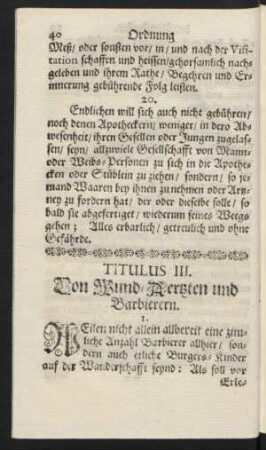 40 Ordnung
Meß/ oder sonsten vor/ in/ und nach der Visi-
tation schaffen und heissen/gehorsamlich nach-
geleben und ihrem Rathe/ Begehren und Er-
innerung gebührende Folg leisten.
20.
Endlichen will sich auch nicht gebühren/
noch denen Apotheckern/ weniger/ in dero Ab-
wesenheit/ ihren Gesellen oder Jungen zugelas-
sen/ seyn/ allzuviele Gesellschafft von Mann-
oder Weibs-Personen zu sich in die Apothe-
cken oder Stüblein zu ziehen/ sondern/ so je-
mand Waaren bey ihnen zu nehmen oder Artz-
ney zu fordern hat/ der oder dieselbe solle/ so
bald sie abgefertiget/ wiederum seines Weegs
gehen; Alles erbarlich/ getreulich und ohne
Gefährde.
TITULUS III.
Von Wund-Aertzten und
Barbierern.
1.
WEilen nicht allein allbereit eine zim-
liche Anzahl Barbierer allhier/ son-
dern auch etliche Burgers-Kinder
auf der Wanderschafft seynd: Als soll vor
Erle-